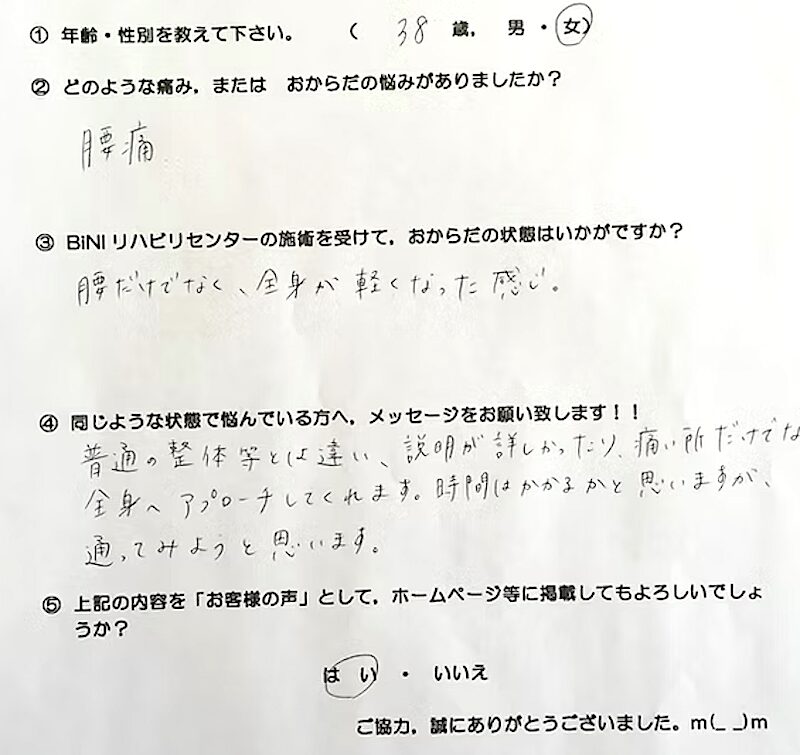 ① 年齢・性別を教えて下さい。 ( 38 歳, 男 ・ 女)
② どのような痛み,または おからだの悩みがありましたか?
腰痛
③ BiNIリハビリセンターの施術を受けて,おからだの状態はいかがですか?
腰だけでなく、全身が軽くなった感じ。
④ 同じような状態で悩んでいる方へ,メッセージをお願い致します!!
普通の整体等とは違い、説明が詳しかったり、痛い所だけでな
全身へアプローチしてくれます。時間はかかるかと思いますが、
通ってみようと思います。
⑤ 上記の内容を「お客様の声」として,ホームページ等に掲載してもよろしいでしょ
うか?
はい ・ いいえ
ご協力,誠にありがとうございました。m(_ _)m